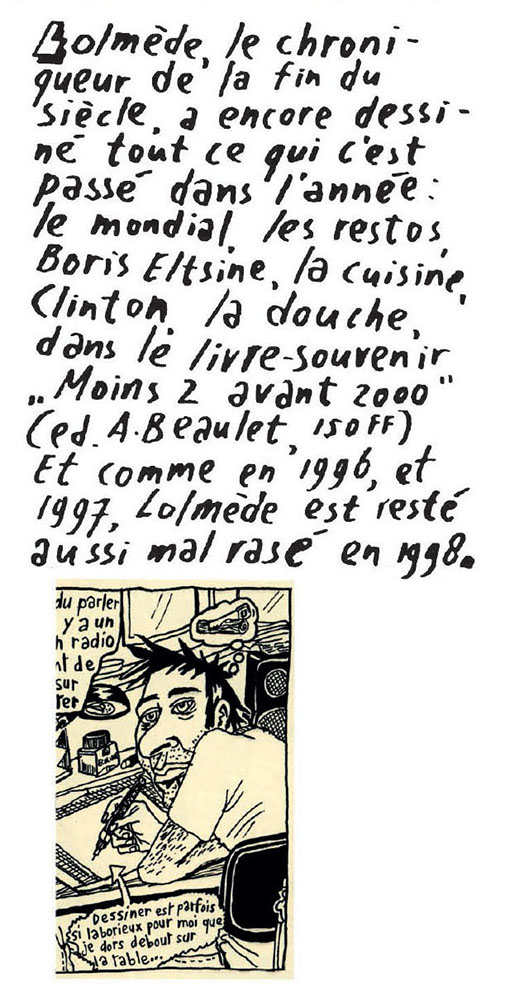 Lolmède, le chroni-
queur de la fin du
siècle, a encore dessi-
né tout ce qui c'est
passé dans l'année:
le mondial, les restos,
Boris Eltsine, la cuisine,
Clinton, la douche,
dans le livre-souvenir
„Moins 2 avant 2000"
(ed. A.Beaulet, 150FF)
Et comme en 1996, et
1997, Lolmède est resté
aussi mal rasé en 1998.
du parler
y a un
n radio
nt de
sur
rer
Dessiner est parfois
si laborieux pour moi que
je dors debout sur
la table...